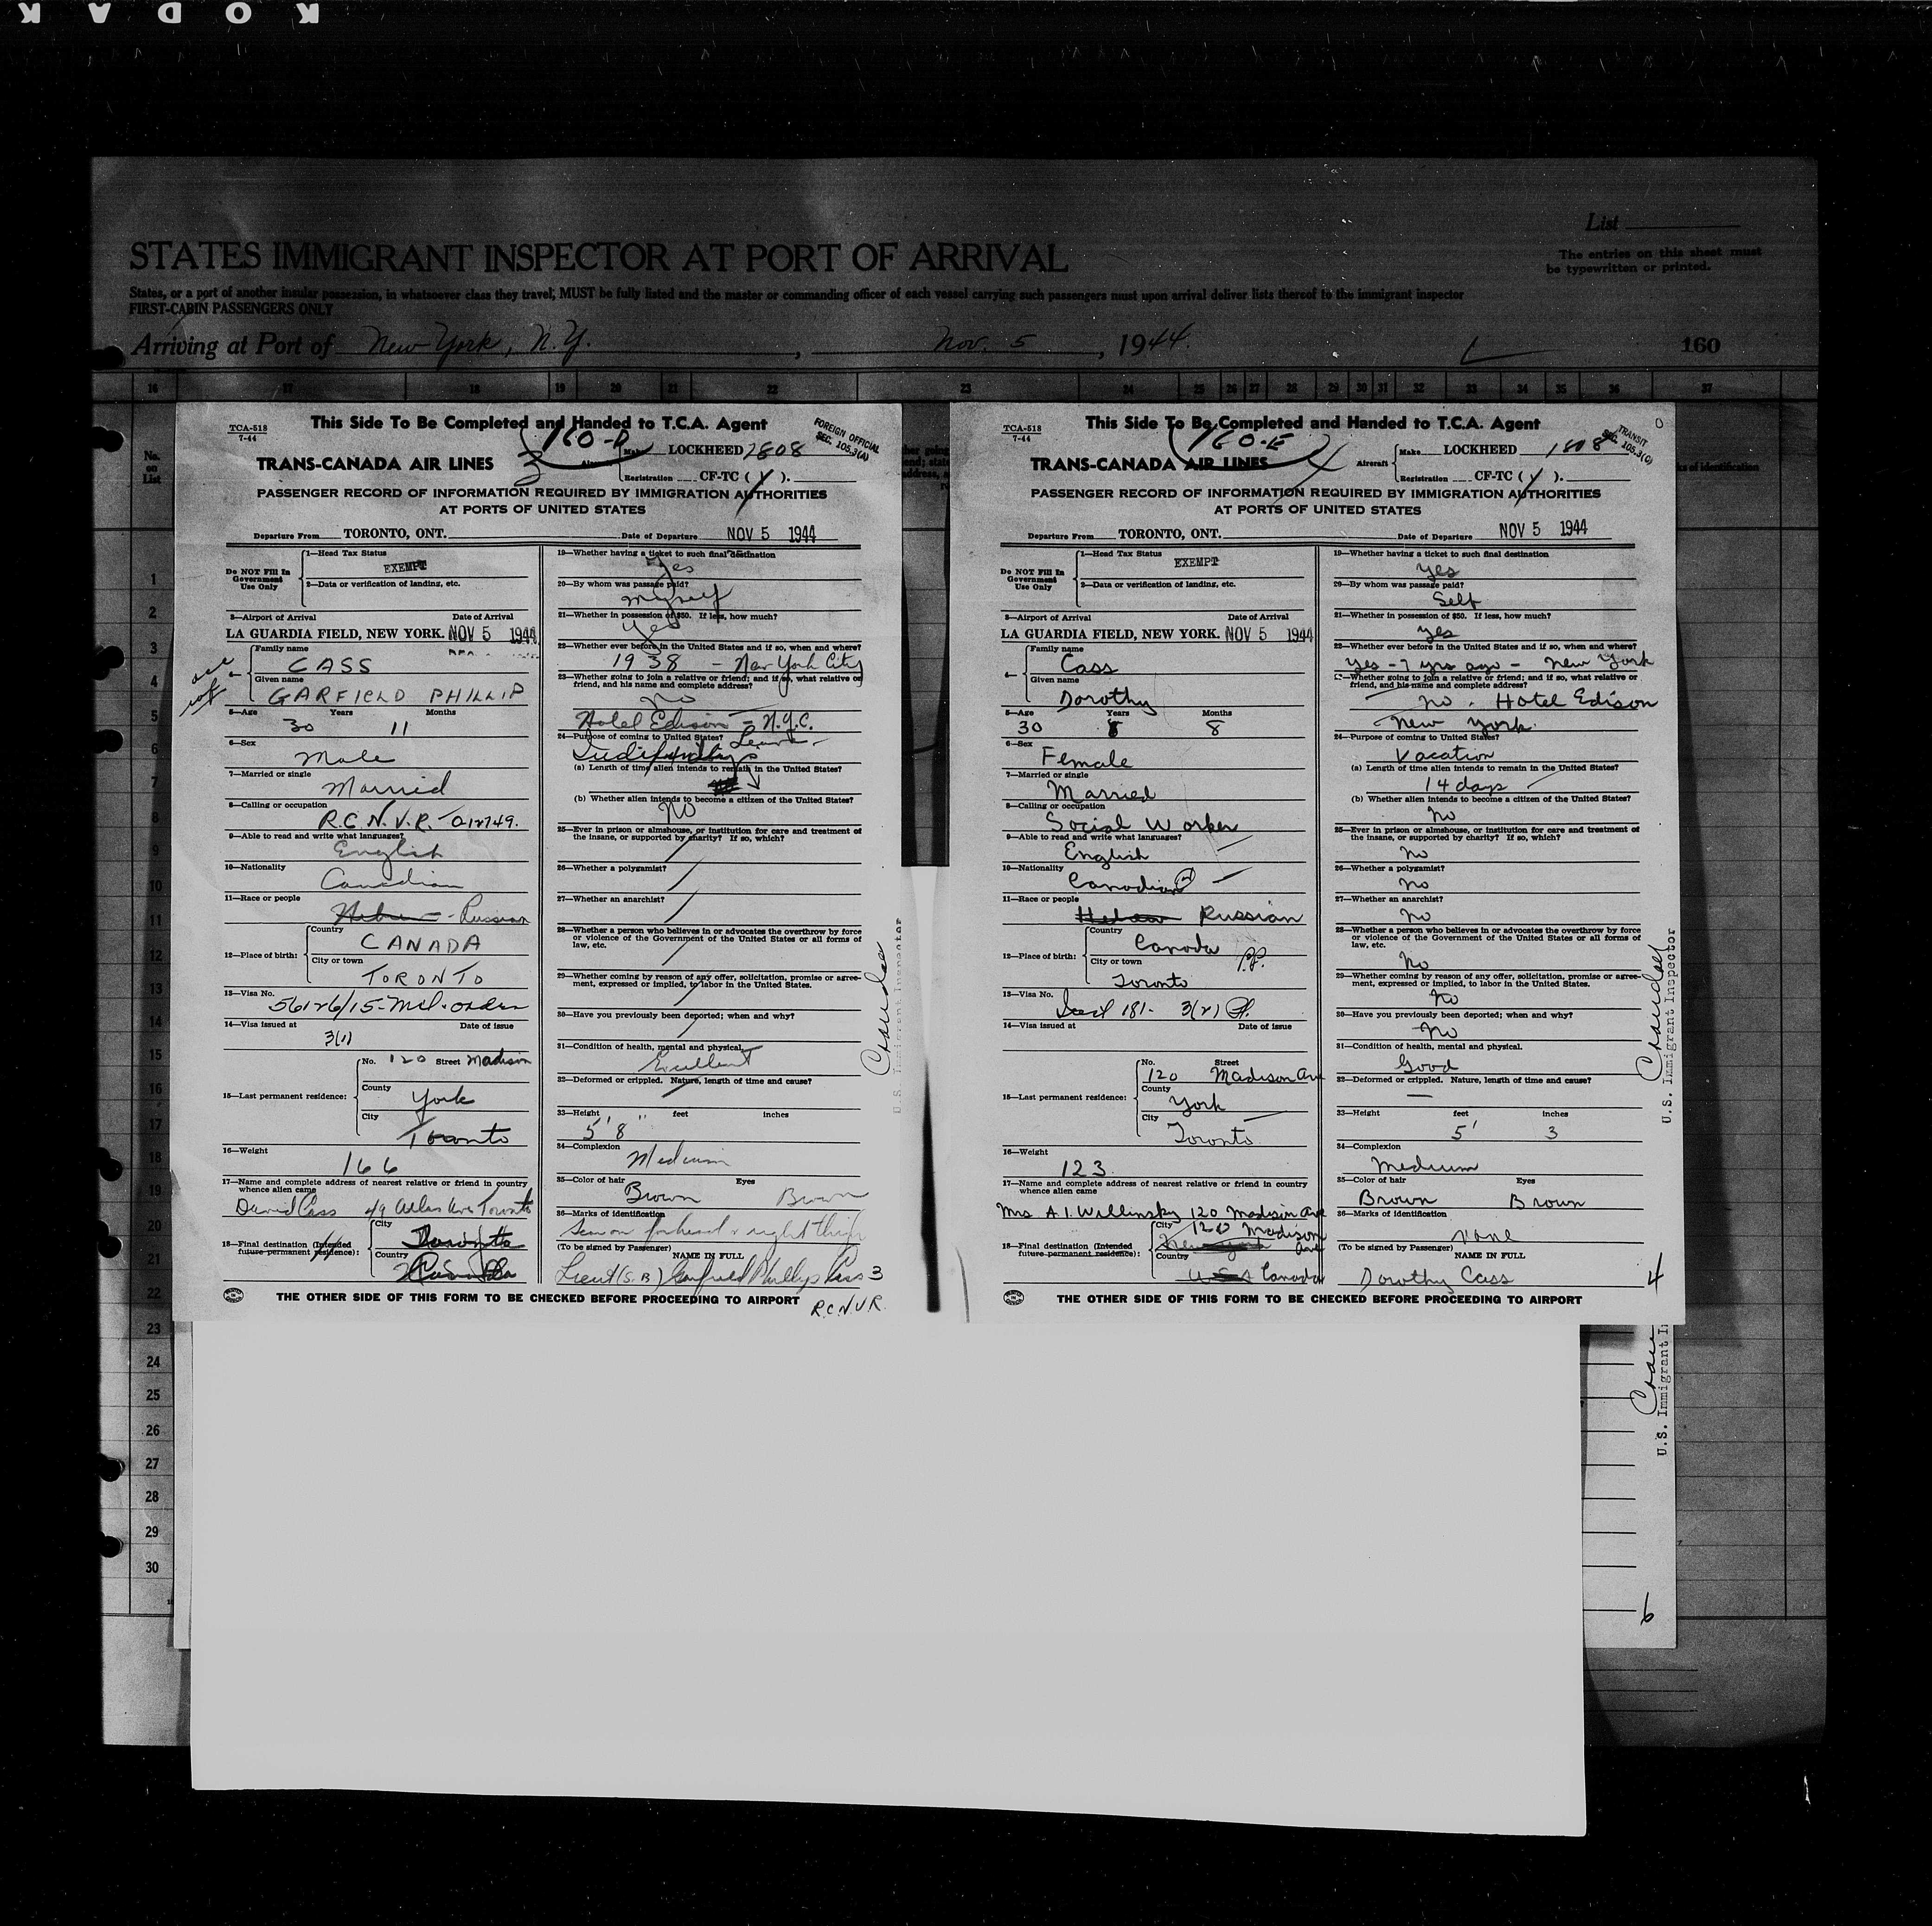 KODAK
List
The entries on this sheet must
be typewritten or printed.
STATES IMMIGRANT INSPECTOR AT PORT OF ARRIVAL
States, or a port of another insular possession, in whatsoever class they travel, MUST be fully listed and the master or commanding officer of each vessel carrying such passengers must upon arrival deliver lists thereof to the immigrant inspector
FIRST-CABIN PASSENGERS ONLY
Arriving at Port of New York, N.Y. , Nov. 5 , 1944. 160
16 17 18 19 20 21 22 23 24 25 26 27 28 29 30 31 32 33 34 35 36 37
No.
on
List
1
2
3
4
5
6
7
8
9
10
11
12
13
14
15
16
17
18
19
20
21
22
23
24
25
26
27
28
29
30
TCA-518
7-44
This Side To Be Completed and Handed to T.C.A. Agent
160-D
FOREIGN OFFICIAL
SEC. 105.3(A)
TRANS-CANADA AIR LINES 3 Aircraft Make LOCKHEED 1808
Registration CF-TC ( Y ).
PASSENGER RECORD OF INFORMATION REQUIRED BY IMMIGRATION AUTHORITIES
AT PORTS OF UNITED STATES
Departure From TORONTO, ONT. Date of Departure NOV 5 1944
Do NOT Fill In
Government
Use Only
1—Head Tax Status
EXEMPT
2—Data or verification of landing, etc.
3—Airport of Arrival Date of Arrival
LA GUARDIA FIELD, NEW YORK. NOV 5 1944
4— Family name
CASS
Given name
GARFIELD PHILLIP
5—Age Years Months
30 11
6—Sex
Male
7—Married or single
Married
8—Calling or occupation
R.C.N.V.R. - 012749.
9—Able to read and write what languages?
English
10—Nationality
Canadian
11—Race or people
Hebrew - Russian
12—Place of birth: Country
CANADA
City or town
TORONTO
13—Visa No.
56126/15-Mil. order
14—Visa issued at Date of issue
3(1)
15—Last permanent residence: No. 120 Street Madison
County
York
City
Toronto
16—Weight
166
17—Name and complete address of nearest relative or friend in country
whence alien came
David Cass 49 Atlas Ave Toronto
18—Final destination (Intended
future permanent residence): City
Toronto
Country
Canada
19—Whether having a ticket to such final destination
Yes
20—By whom was passage paid?
Myself
21—Whether in possession of $50. If less, how much?
Yes
22—Whether ever before in the United States and if so, when and where?
1938 - New York City
23—Whether going to join a relative or friend; and if so, what relative or
friend, and his name and complete address?
No
Hotel Edison - N.Y.C.
24—Purpose of coming to United States? Leave
(a) Length of time alien intends to remain in the United States?
(b) Whether alien intends to become a citizen of the United States?
No
25—Ever in prison or almshouse, or institution for care and treatment of
the insane, or supported by charity? If so, which?
26—Whether a polygamist?
27—Whether an anarchist?
28—Whether a person who believes in or advocates the overthrow by force
or violence of the Government of the United States or all forms of
law, etc.
29—Whether coming by reason of any offer, solicitation, promise or agree-
ment, expressed or implied, to labor in the United States.
30—Have you previously been deported; when and why?
31—Condition of health, mental and physical.
Excellent
32—Deformed or crippled. Nature, length of time and cause?
33—Height feet inches
5' 8"
34—Complexion
Medium
35—Color of hair Eyes
Brown Brown
36—Marks of identification
forehead & right thigh
(To be signed by Passenger) NAME IN FULL
Lieut (S.B) Garfield Phillip Cass 3
R.C.N.V.R.
THE OTHER SIDE OF THIS FORM TO BE CHECKED BEFORE PROCEEDING TO AIRPORT
U.S. Immigrant Inspector
TCA-518
7-44
This Side To Be Completed and Handed to T.C.A. Agent
160-E
TRANSIT
SEC. 105.3(C)
TRANS-CANADA AIR LINES 4 Aircraft Make LOCKHEED 1808
Registration CF-TC ( Y ).
PASSENGER RECORD OF INFORMATION REQUIRED BY IMMIGRATION AUTHORITIES
AT PORTS OF UNITED STATES
Departure From TORONTO, ONT. Date of Departure NOV 5 1944
Do NOT Fill In
Government
Use Only
1—Head Tax Status
EXEMPT
2—Data or verification of landing, etc.
3—Airport of Arrival Date of Arrival
LA GUARDIA FIELD, NEW YORK. NOV 5 1944
4— Family name
Cass
Given name
Dorothy
5—Age Years Months
30 8 8
6—Sex
Female
7—Married or single
Married
8—Calling or occupation
Social Worker
9—Able to read and write what languages?
English
10—Nationality
Canadian
11—Race or people
Hebrew Russian
12—Place of birth: Country
Canada
City or town P.P.
Toronto
13—Visa No.
181- 3(2)
14—Visa issued at Date of issue
15—Last permanent residence: No. Street
120 Madison Ave
County
York
City
Toronto
16—Weight
123
17—Name and complete address of nearest relative or friend in country
whence alien came
Mrs A.I. Willinsky 120 Madison Ave
18—Final destination (Intended
future permanent residence): City 120 Madison Ave
New York
Country
USA Canada
19—Whether having a ticket to such final destination
yes
20—By whom was passage paid?
Self
21—Whether in possession of $50. If less, how much?
yes
22—Whether ever before in the United States and if so, when and where?
yes - 7 yrs ago - New York
23—Whether going to join a relative or friend; and if so, what relative or
friend, and his name and complete address?
no. Hotel Edison
New York.
24—Purpose of coming to United States?
Vacation
(a) Length of time alien intends to remain in the United States?
14 days
(b) Whether alien intends to become a citizen of the United States?
No
25—Ever in prison or almshouse, or institution for care and treatment of
the insane, or supported by charity? If so, which?
No
26—Whether a polygamist?
No
27—Whether an anarchist?
No
28—Whether a person who believes in or advocates the overthrow by force
or violence of the Government of the United States or all forms of
law, etc.
No
29—Whether coming by reason of any offer, solicitation, promise or agree-
ment, expressed or implied, to labor in the United States.
No
30—Have you previously been deported; when and why?
No
31—Condition of health, mental and physical.
Good
32—Deformed or crippled. Nature, length of time and cause?
—
33—Height feet inches
5' 3
34—Complexion
Medium
35—Color of hair Eyes
Brown Brown
36—Marks of identification
None
(To be signed by Passenger) NAME IN FULL
Dorothy Cass 4
THE OTHER SIDE OF THIS FORM TO BE CHECKED BEFORE PROCEEDING TO AIRPORT
U.S. Immigrant Inspector
U.S. Immigrant In
6